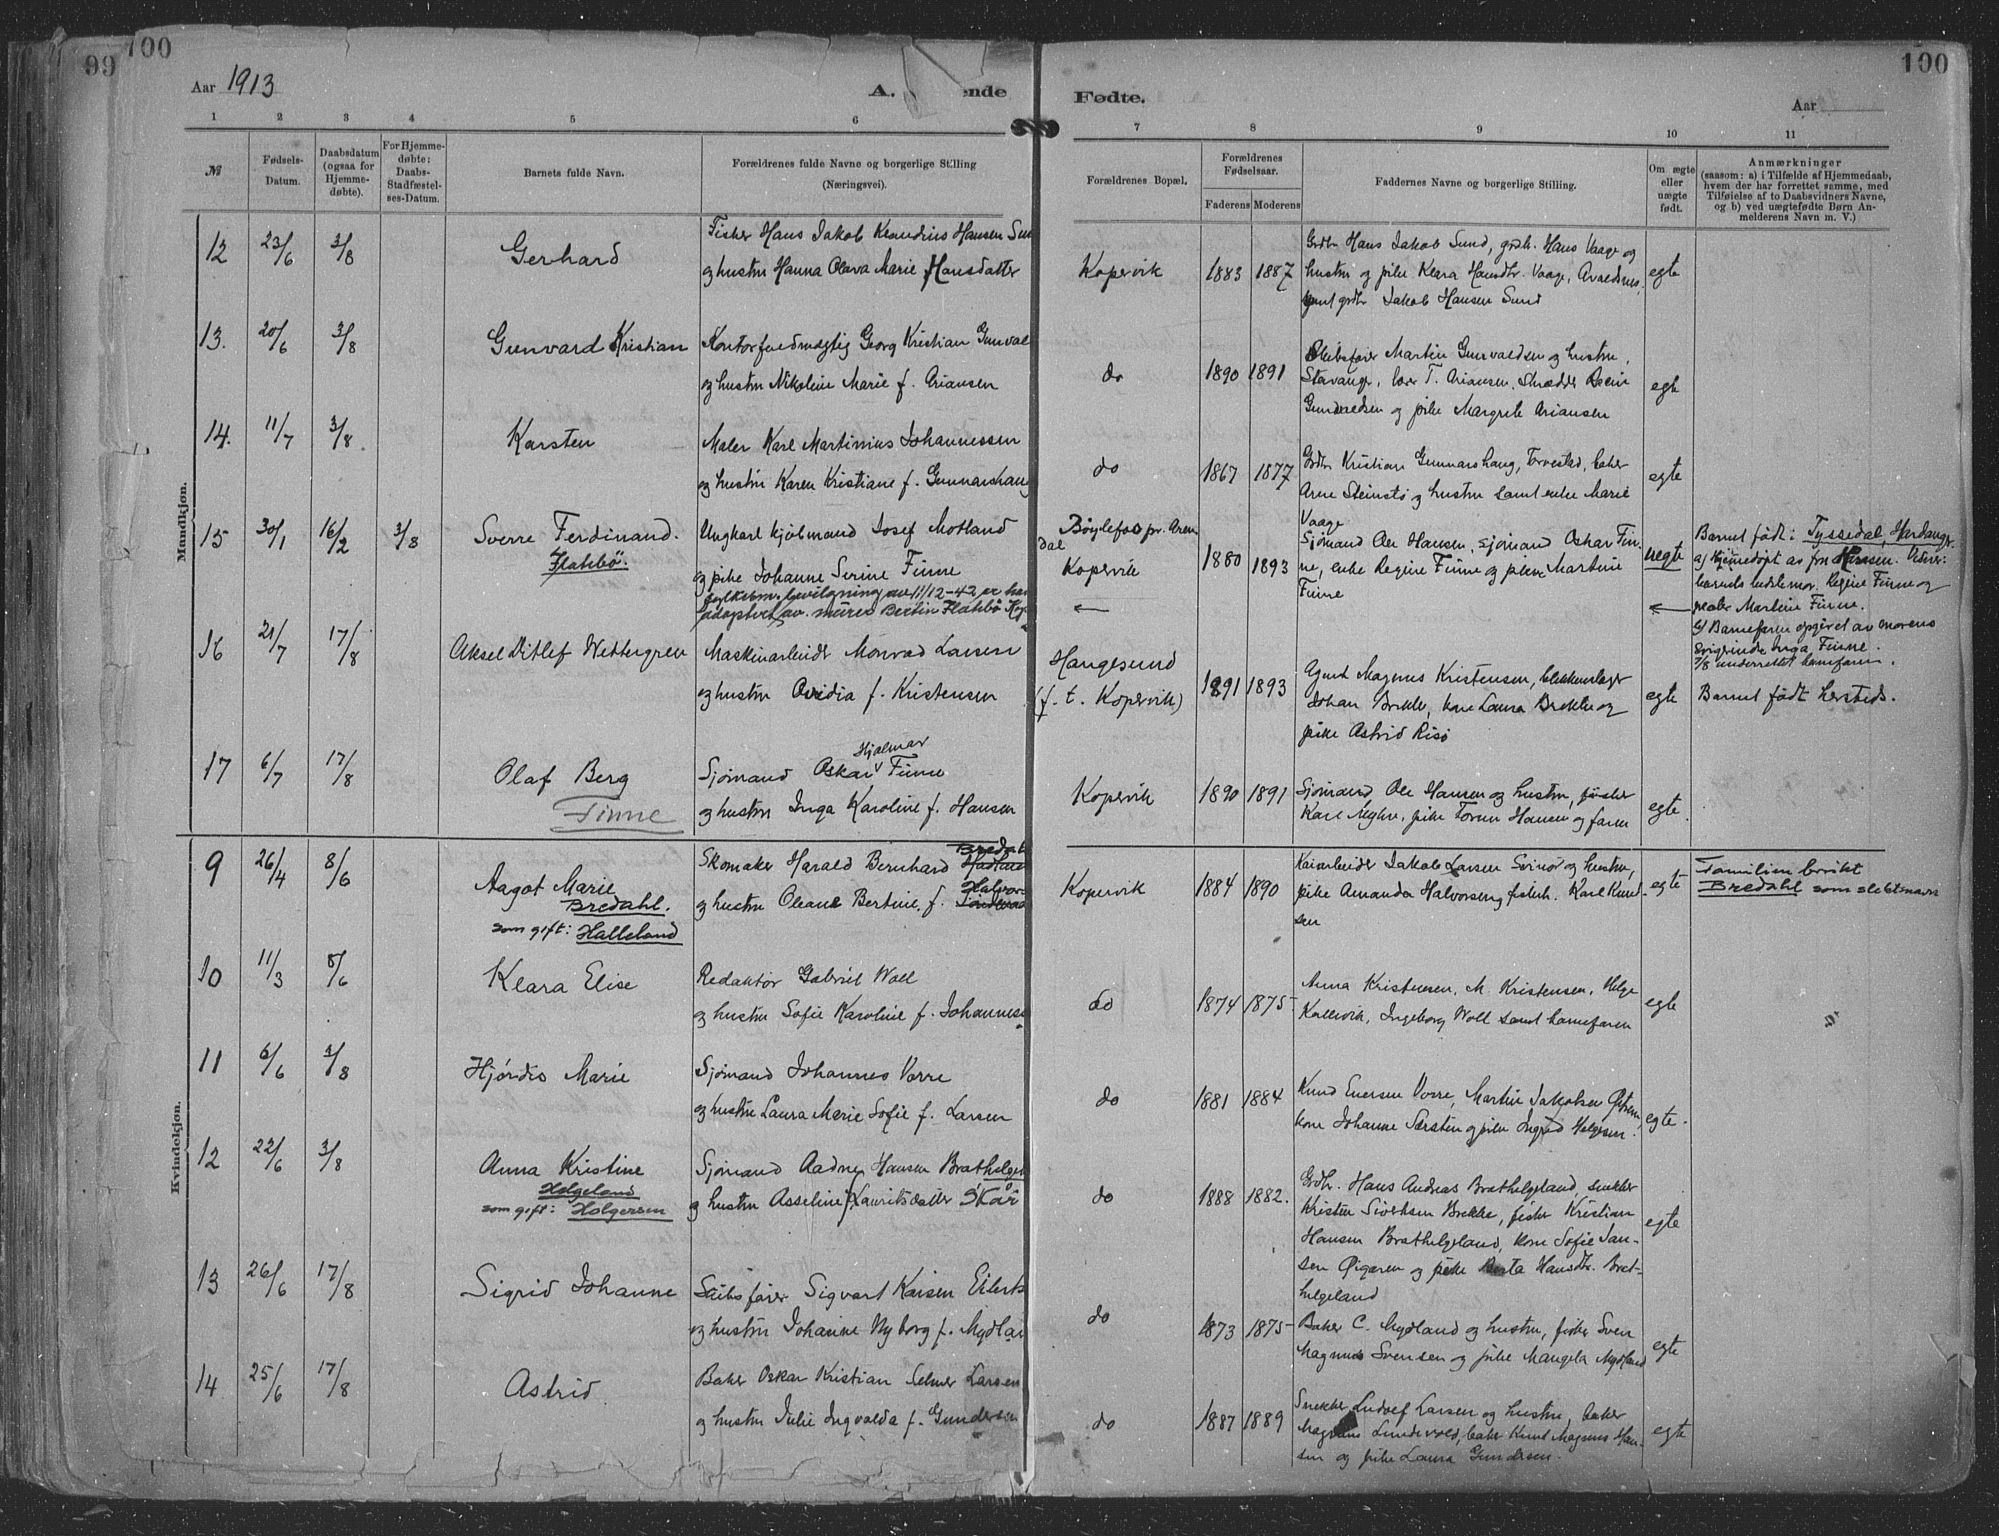 99 100
100
Aar 1913
A. ende
Fødte.
Aar
1 2 3 4 5 6
7 8 9 10 11
№
Fødsels-Datum.
Daabsdatum (ogsaa for Hjemmedøbte).
For Hjemmedøbte: Daabs-Stadfæstelses-Datum.
Barnets fulde Navn.
Forældrenes fulde Navne og borgerlige Stilling (Næringsvei).
Forældrenes Bopæl.
Forældrenes Fødselsaar.
Faderens Moderens
Faddernes Navne og borgerlige Stilling.
Om ægte eller uægte født.
Anmærkninger
(saasom: a) i Tilfælde af Hjemmedaab,
hvem der har forrettet samme, med
Tilføielse af to Daabsvidners Navne,
og b) ved uægtefødte Børn An-
melderens Navn m. V.)
Mandkjøn.
12 23/6 3/8 Gerhard
Fisker Hans Jakob Klaudius Hansen Sun
og hustru Hanna Olava Marie Hansdatter
Kopervik 1883 1887
Grdbr Hans Jakob Sund, grdb. Hans Vaage og
hustru og pike Klara Hansdtr. Vaage, Avaldsnes,
samt grdbr Jakob Hansen Sund
egte
13. 20/6 3/8 Gunvard Kristian
Kontorfuldmægtig Georg Kristian Gunval
og hustru Nikoline Marie f. Ariansen
do 1890 1891
Skibsfører Martin Gunvaldsen og hustru,
Stavanger, T. Ariansen, Skrædder
Gunvaldsen og pike Margrete Ariansen
egte
14. 11/7 3/8 Karsten
Maler Karl Martinius Johannessen
og hustru Karen Kristiane f. Gunnarshaug
do 1867 1877
Grdbr Kristian Gunnarshaug, Torvestad, baker
Arne Steinstø og hustru samt enke Marie
Vaage
egte
15 30/1 16/2 3/8 Sverre Ferdinand.
Flatebø.
Ungkarl Josef Motland
og pike Johanne Serine Finne
Fylkesm. bevilgning av 11/12-42 er han
adoptert av murer Bertin Flatebø Kop
Bøylefoss pr. Aren
dal
Kopervik
1880 1893
Sjømand Ole Hansen, sjømand Oskar Fin-
ne, enke Regine Finne og pike Martine
Finne
uegte
Barnet født i Tyssedal, Hardanger.
a) Hjemmedøpt av fru Hansen. Vidner:
barnets bedstemor Regine Finne og
pike Martine Finne.
b) Barnefaren opgivet av morens
svigerinde Inga Finne.
7/8 underrettet barnefaren.
16 21/7 17/8 Aksel Ditlef Wettergren
Maskinarbeider Monrad Larsen
og hustru Ovidia f. Kristensen
Haugesund
(f. t. Kopervik)
1891 1893
Magnus Kristensen, blikkenslager
Johan Brekke, kone Laura Brekke og
pike Astrid Risø
egte
Barnet født hersteds.
17 6/7 17/8 Olaf Berg
Finne
Sjømand Oskar Hjalmar Finne
og hustru Inga Karoline f. Hansen
Kopervik 1890 1891
Sjømand Ole Hansen og hustru, fisker
Karl, pike Torun Hansen og faren
egte.
Kvindekjøn.
9 26/4 8/6 Aagot Marie
Bredahl.
som gift: Halleland
Skomaker Harald Bernhard Bredal
og hustru Oleane Bertine, f. Halvor-
Kopervik 1884 1890
Kaiarbeider Jakob Larsen Svinø og hustru,
pike Amanda Halvorsen og fiskerh. Karl Knud-
sen
egte
Familien brukt
Bredahl som slektsnavn
10 11/3 8/6 Klara Elise
Redaktør Gabriel Woll
og hustru Sofie Karoline f. Johannes
do 1874 1875
Anna Kristensen, M. Kristensen, Helge
Kallevik, Ingeborg Woll samt barnefaren
egte
11 6/6 3/8 Hjørdis Marie
Sjømand Johannes Vorre
og hustru Laura Marie Sofie f. Larsen
do 1881 1884
Knud Evensen Vorre, Martin Jakobsen
kone Johanne og pike Ingrid Helgesen.
egte.
12 22/6 3/8 Anna Kristine
Helgeland
som gift: Holgersen
Sjømand Aadne Hansen Brathelgel
og hustru Asseline Lauritsdatter Skår
do 1888 1882.
Grdbr. Hans Andreas Brathelgeland, snekker
Kristen Sivertsen Brekke, fisker Kristian
Hansen Brathelgeland, kone Sofie Jan-
sen Øigaren og pike Berta Hansdtr. Brat-
helgeland
egte
13 26/6 17/8 Sigrid Johanne
Skibsfører Sigvart Kaisen Eilerts
og hustru Johanne Nyborg f. Mydlan
do 1873 1875
Baker C. Mydland og hustru, fisker Sven
Magnus Svensen og pike Mangela Mydland
egte
14 25/6 17/8 Astrid
Baker Oskar Kristian Selmer Larsen
og hustru Julie Ingvalda f. Gundersen
do 1887 1889
Snekker Ludvef Larsen og hustru, baker
Magnus Lundevold, baker Knut Magnus Han-
sen og pike Laura Gundersen.
egte